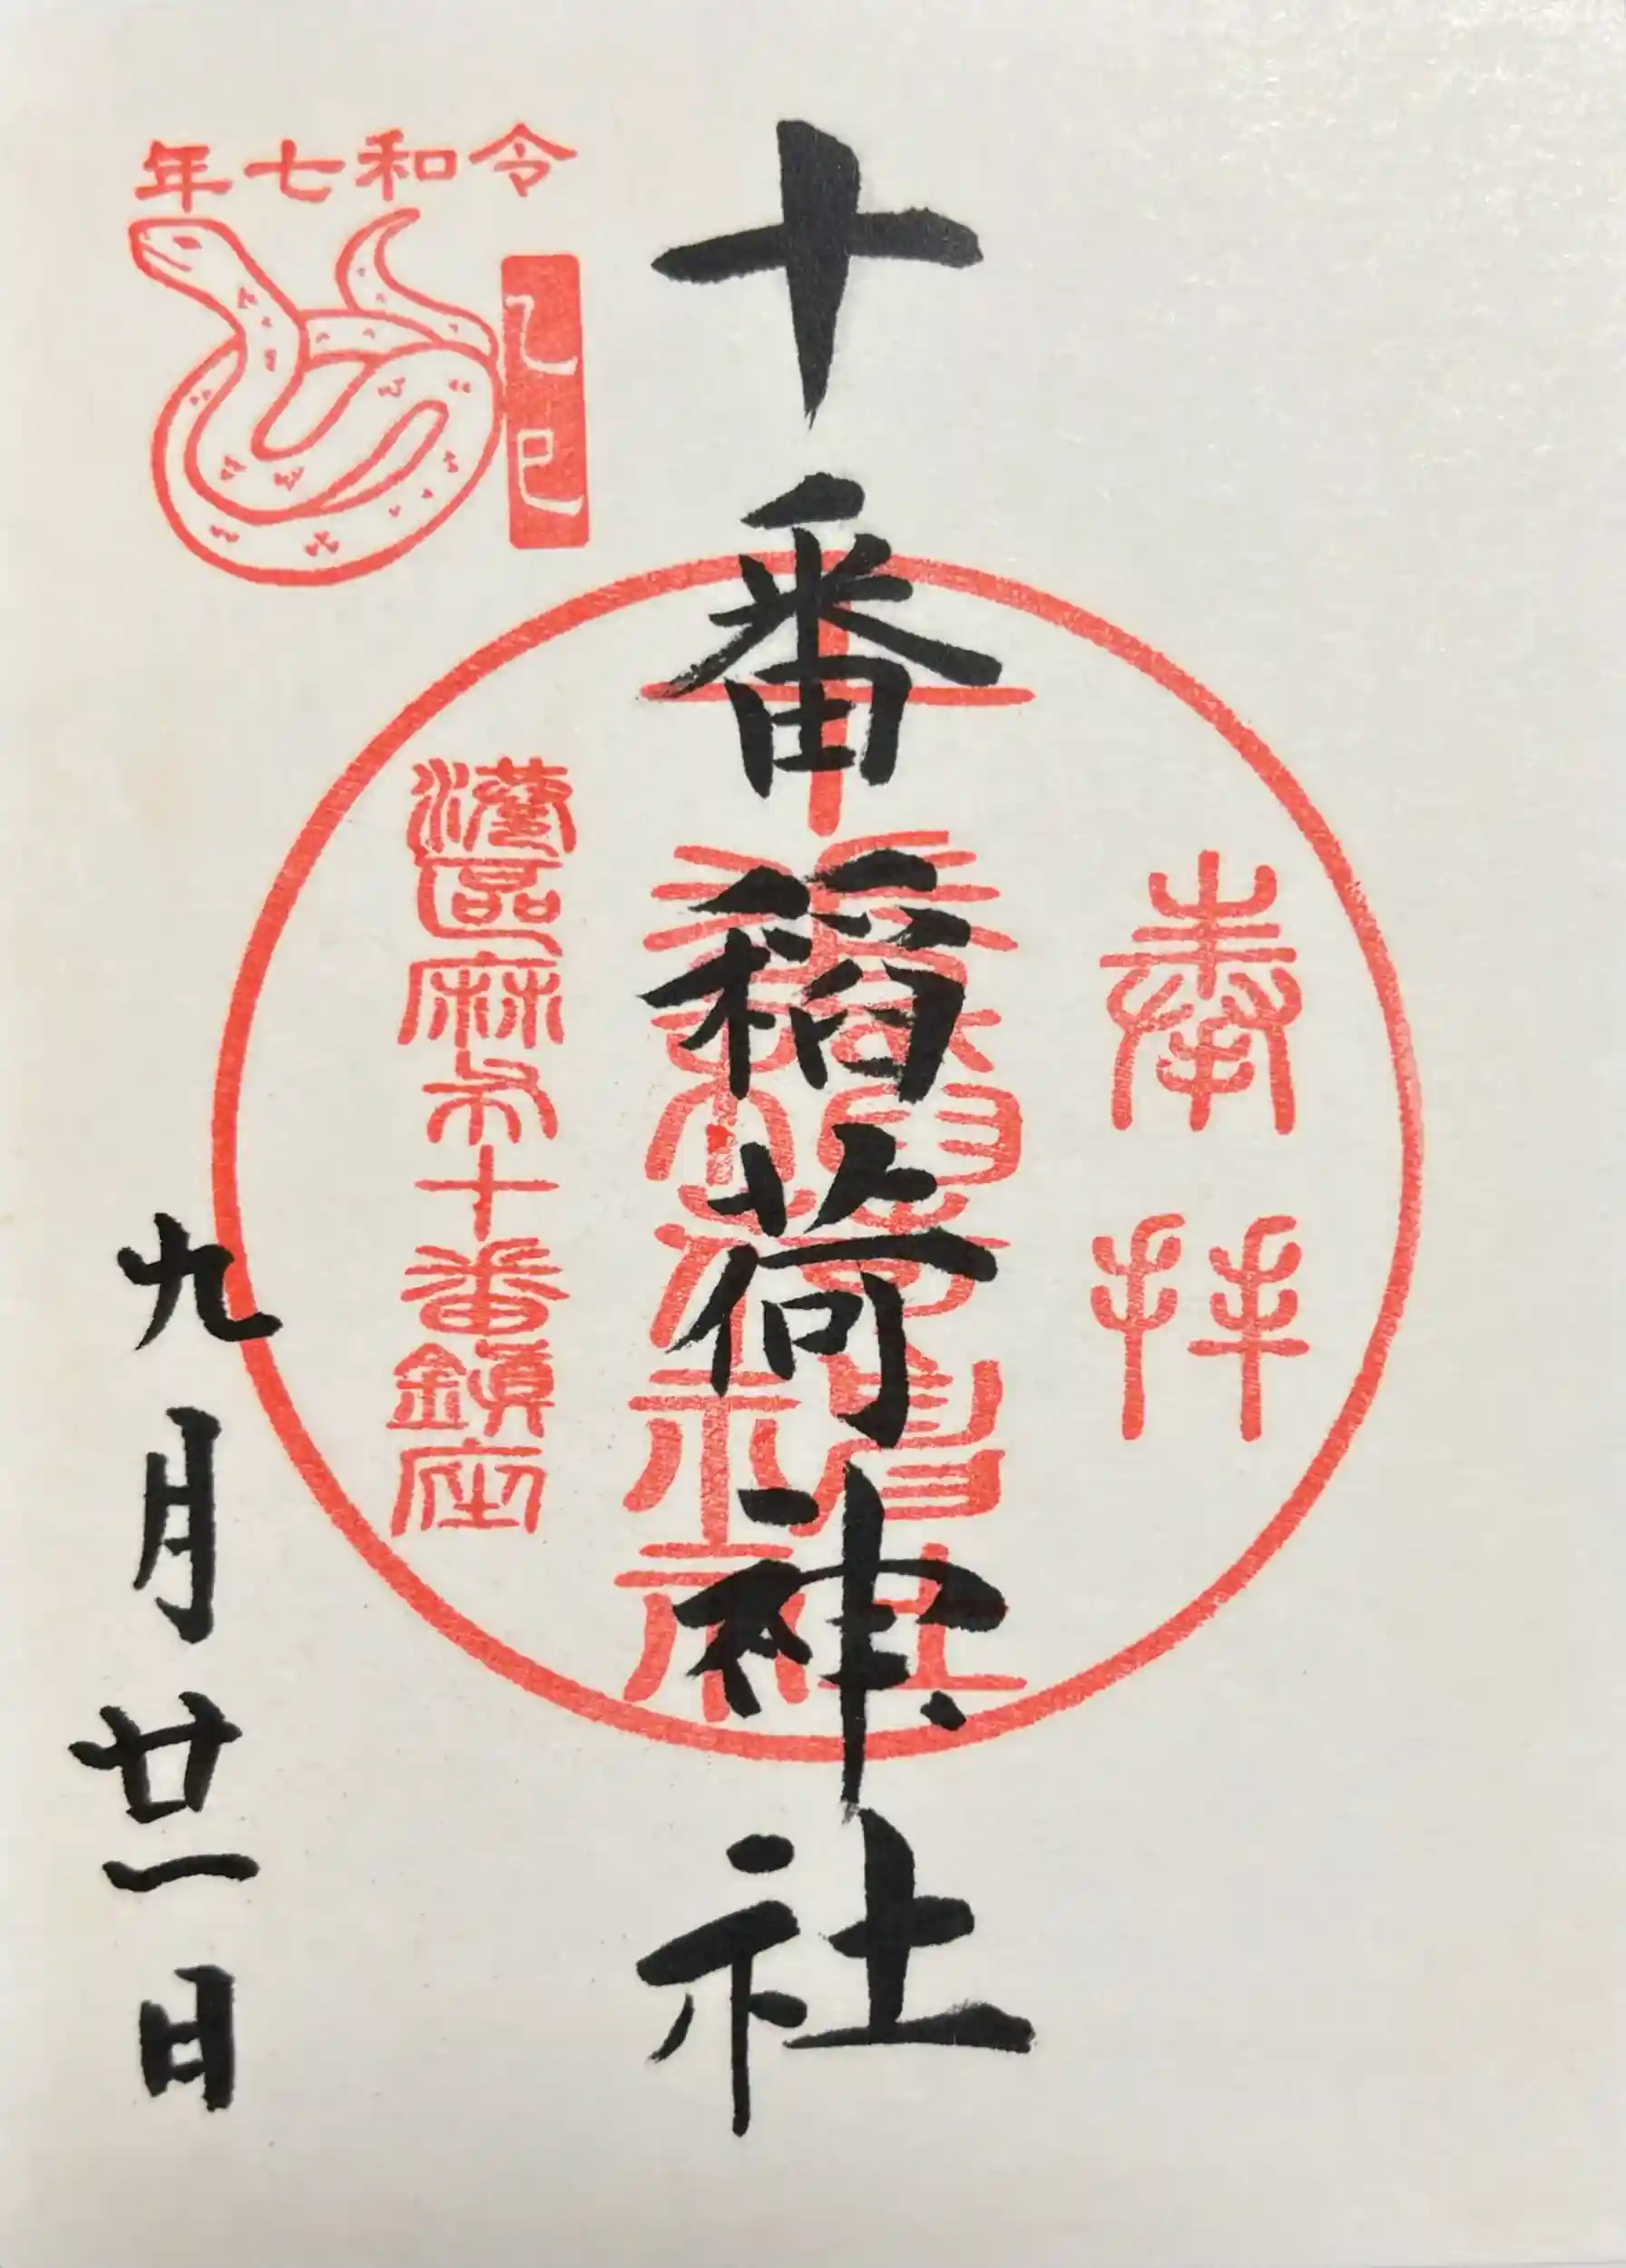 奉拝
十番稲荷神社
十番稲荷神社
港區麻布十番鎮座
令和七年
乙巳
九月廿一日